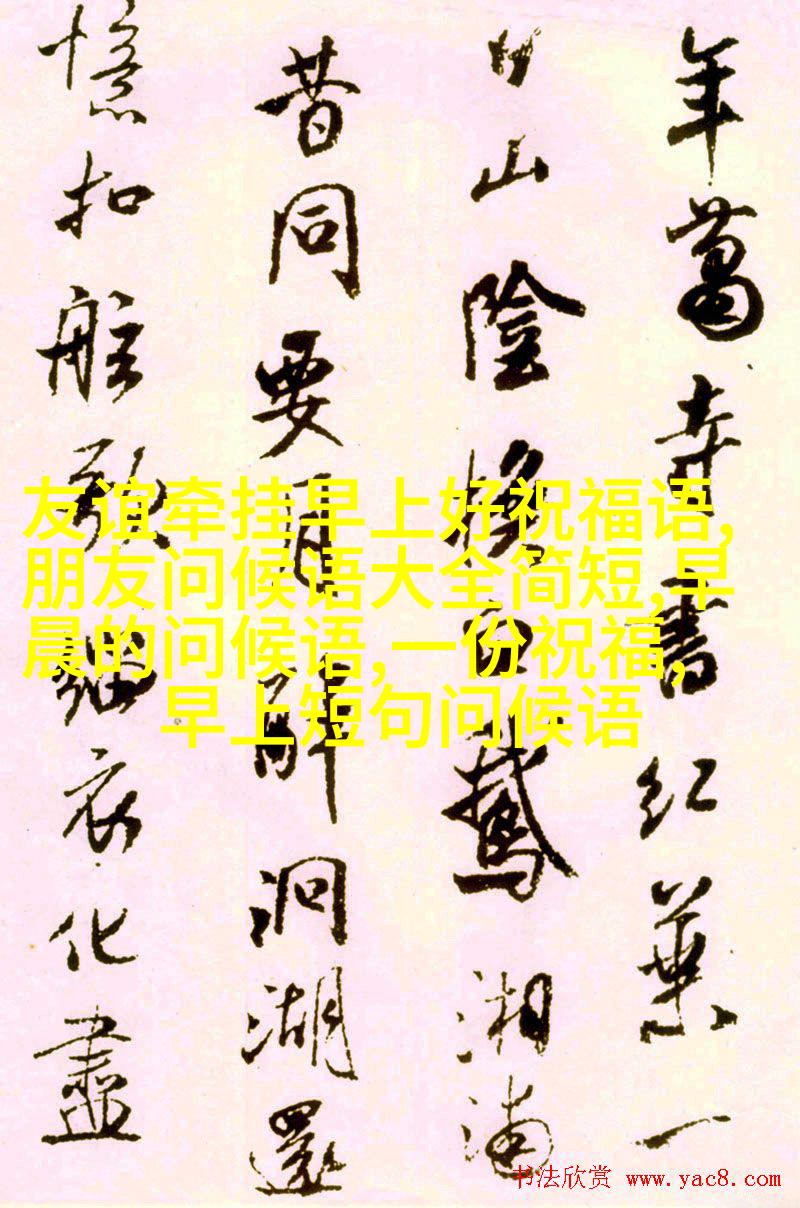 年蕭寺書紅葉一
日山陰換白鵞湘浦
昔同要月醉洞湖還
憶扣舷歌緇衣化盡
友谊牵挂早上好祝福语,
朋友问候语大全简短,早
晨的问候语,一份祝福,
早上短句问候语
书法欣赏 www.yac8.com